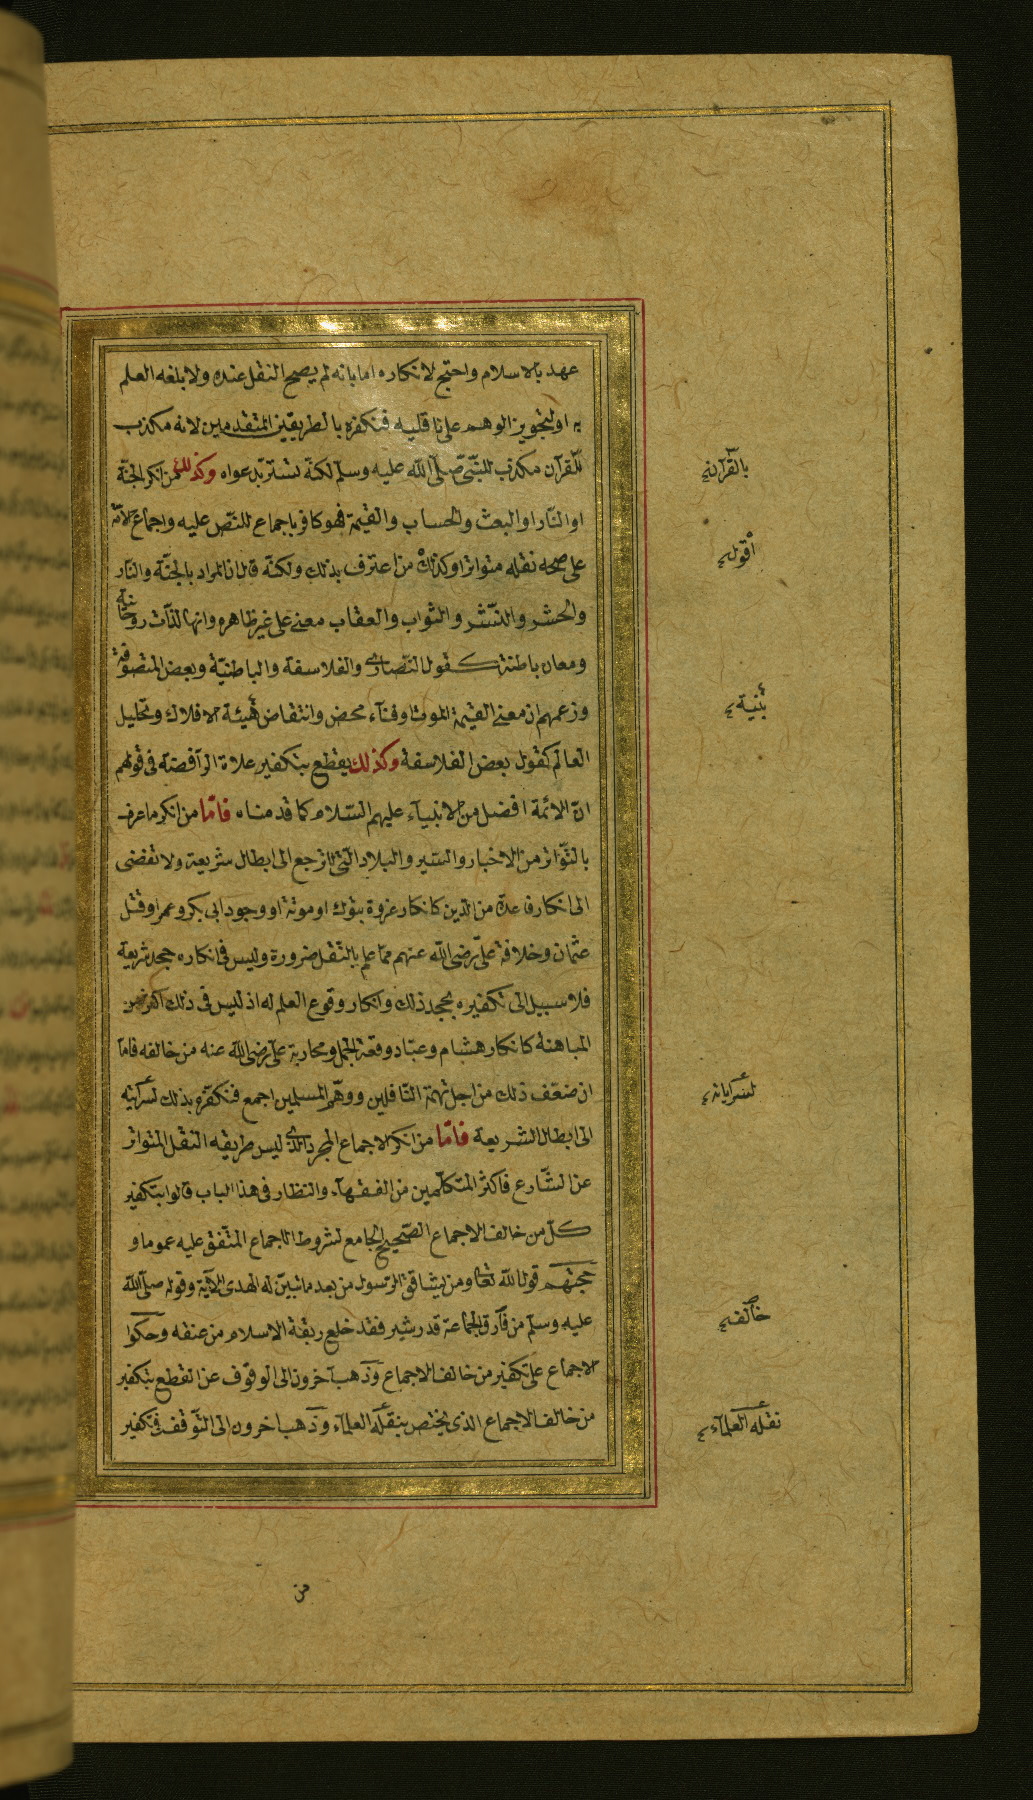 عهد بالاسلام واحتج لانكاره اما بانه لم يصح النقل عنده ولا بلغه العلم
به او لتجويز الوهم على ناقليه فنكفره بالطريقين المتقدمين لانه مكذب
للقرآن مكذب للنبي صلى الله عليه وسلم لكنه تستر بدعواه وكذلك من انكر الجنة
او النار او البعث والحساب والقيمة فهو كافر باجماع للنص عليه واجماع الامة
على صحة نقله متواترا وكذلك من اعترف بذلك ولكنه قال ان المراد بالجنة والنار
والحشر والنشر والثواب والعقاب معنى على غير ظاهره وانها لذات روحانية
ومعان باطنة كقول النصارى والفلاسفة والباطنية وبعض المتصوفة
وزعمهم ان معنى القيمة الموت او فناء محض وانتقاض هيئة الافلاك وتحليل
العالم كقول بعض الفلاسفة وكذلك يقطع بتكفير غلاة الرافضة فى قولهم
ان الائمة افضل من الانبياء عليهم السلام كما قدمناه فاما من انكر ما عرف
بالتواتر من الاخبار والسير والبلاد التى لا ترجع الى ابطال شريعة ولا تفضى
الى انكار قاعدة من الدين كانكار غزوة تبوك او موتة او وجود ابى بكر وعمر او قتل
عثمان وخلافة على رضى الله عنهم مما علم بالنقل ضرورة وليس فى انكاره جحد شريعة
فلا سبيل الى تكفيره بجحد ذلك وانكار وقوع العلم له اذ ليس فى ذلك اكثر من
المباهتة كانكار هشام وعباد وقعة الجمل ومحاربة على رضى الله عنه من خالفه فاما
ان ضعف ذلك من اجل تهمة الناقلين ووهم المسلمين اجمع فنكفره بذلك لسرايته
الى ابطال الشريعة فاما من انكر الاجماع المجرد الذى ليس طريقه النقل المتواتر
عن الشارع فاكثر المتكلمين من الفقهاء والنظار فى هذا الباب قالوا بتكفير
كل من خالف الاجماع الصحيح الجامع لشروط الاجماع المتفق عليه عموما و
حجتهم قول الله تعا ومن يشاقق الرسول من بعد ما تبين له الهدى الآية وقوله صلى الله
عليه وسلم من فارق الجماعة قدر شبر فقد خلع ربقة الاسلام من عنقه وحكوا
الاجماع على تكفير من خالف الاجماع وذهب آخرون الى الوقوف عن القطع بتكفير
من خالف الاجماع الذى يختص بنقله العلماء وذهب آخرون الى التوقف فى تكفير
بالقرآن
أقول
بنية
لسرايته
خالف
نقله العلماء
من